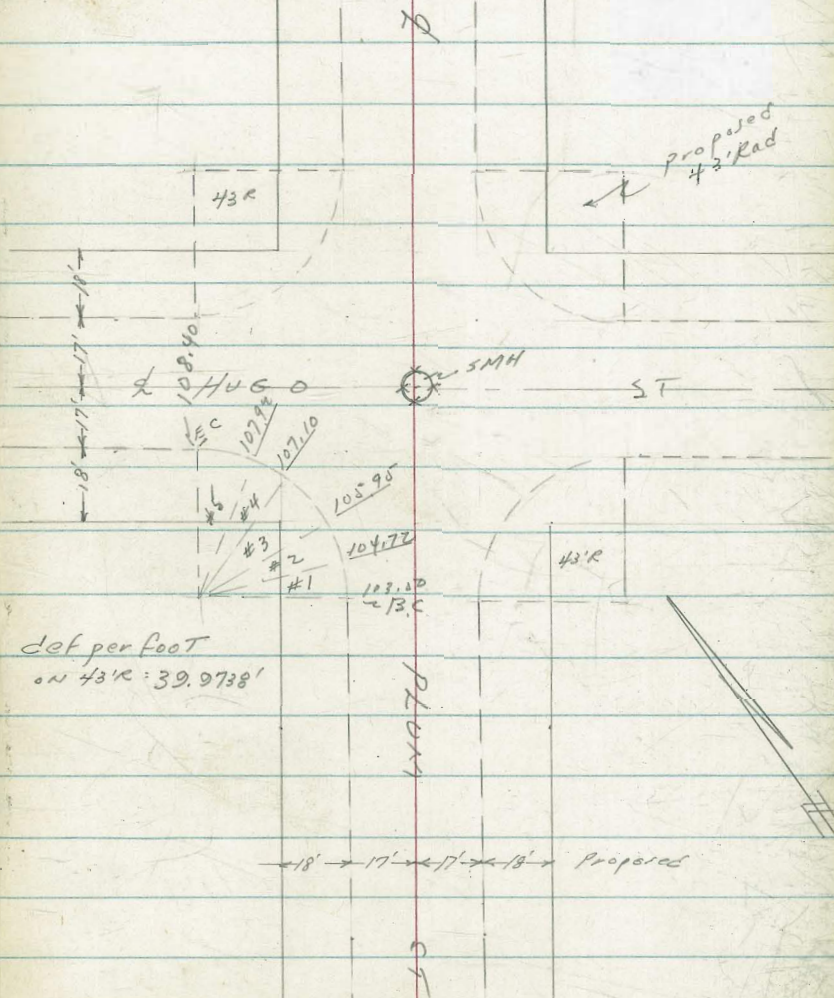 ℄
proposed
43' Rad
43 R
18'
17'
17'
18'
108.40
SMH
℄ HUGO ST
EC
107.94
107.10
105.95
104.72
103.50
B.C
#5
#4
#3
#2
#1
43'R
def per foot
ON 43'R = 39.9738'
18' 17' 17' 18' Proposed
ST